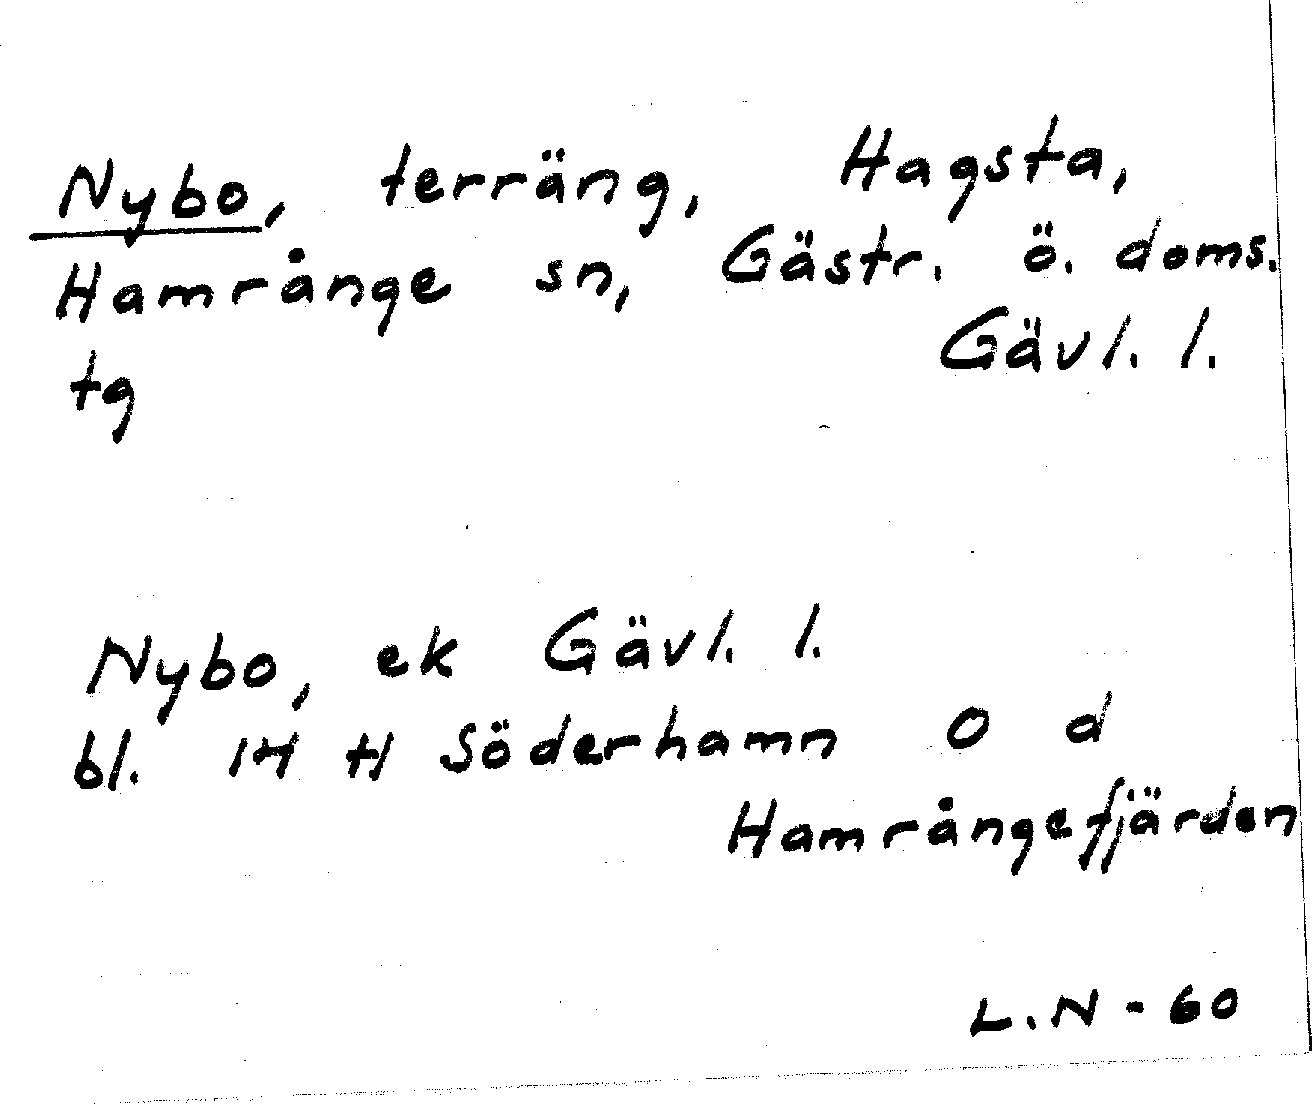 Nybo, terräng, Hagsta,
Hamrånge sn, Gästr. ö. doms.
tg Gävl. l.
Nybo, ek Gävl. l.
bl. 14 H Söderhamn O d
Hamrångefjärden
L.N - 60